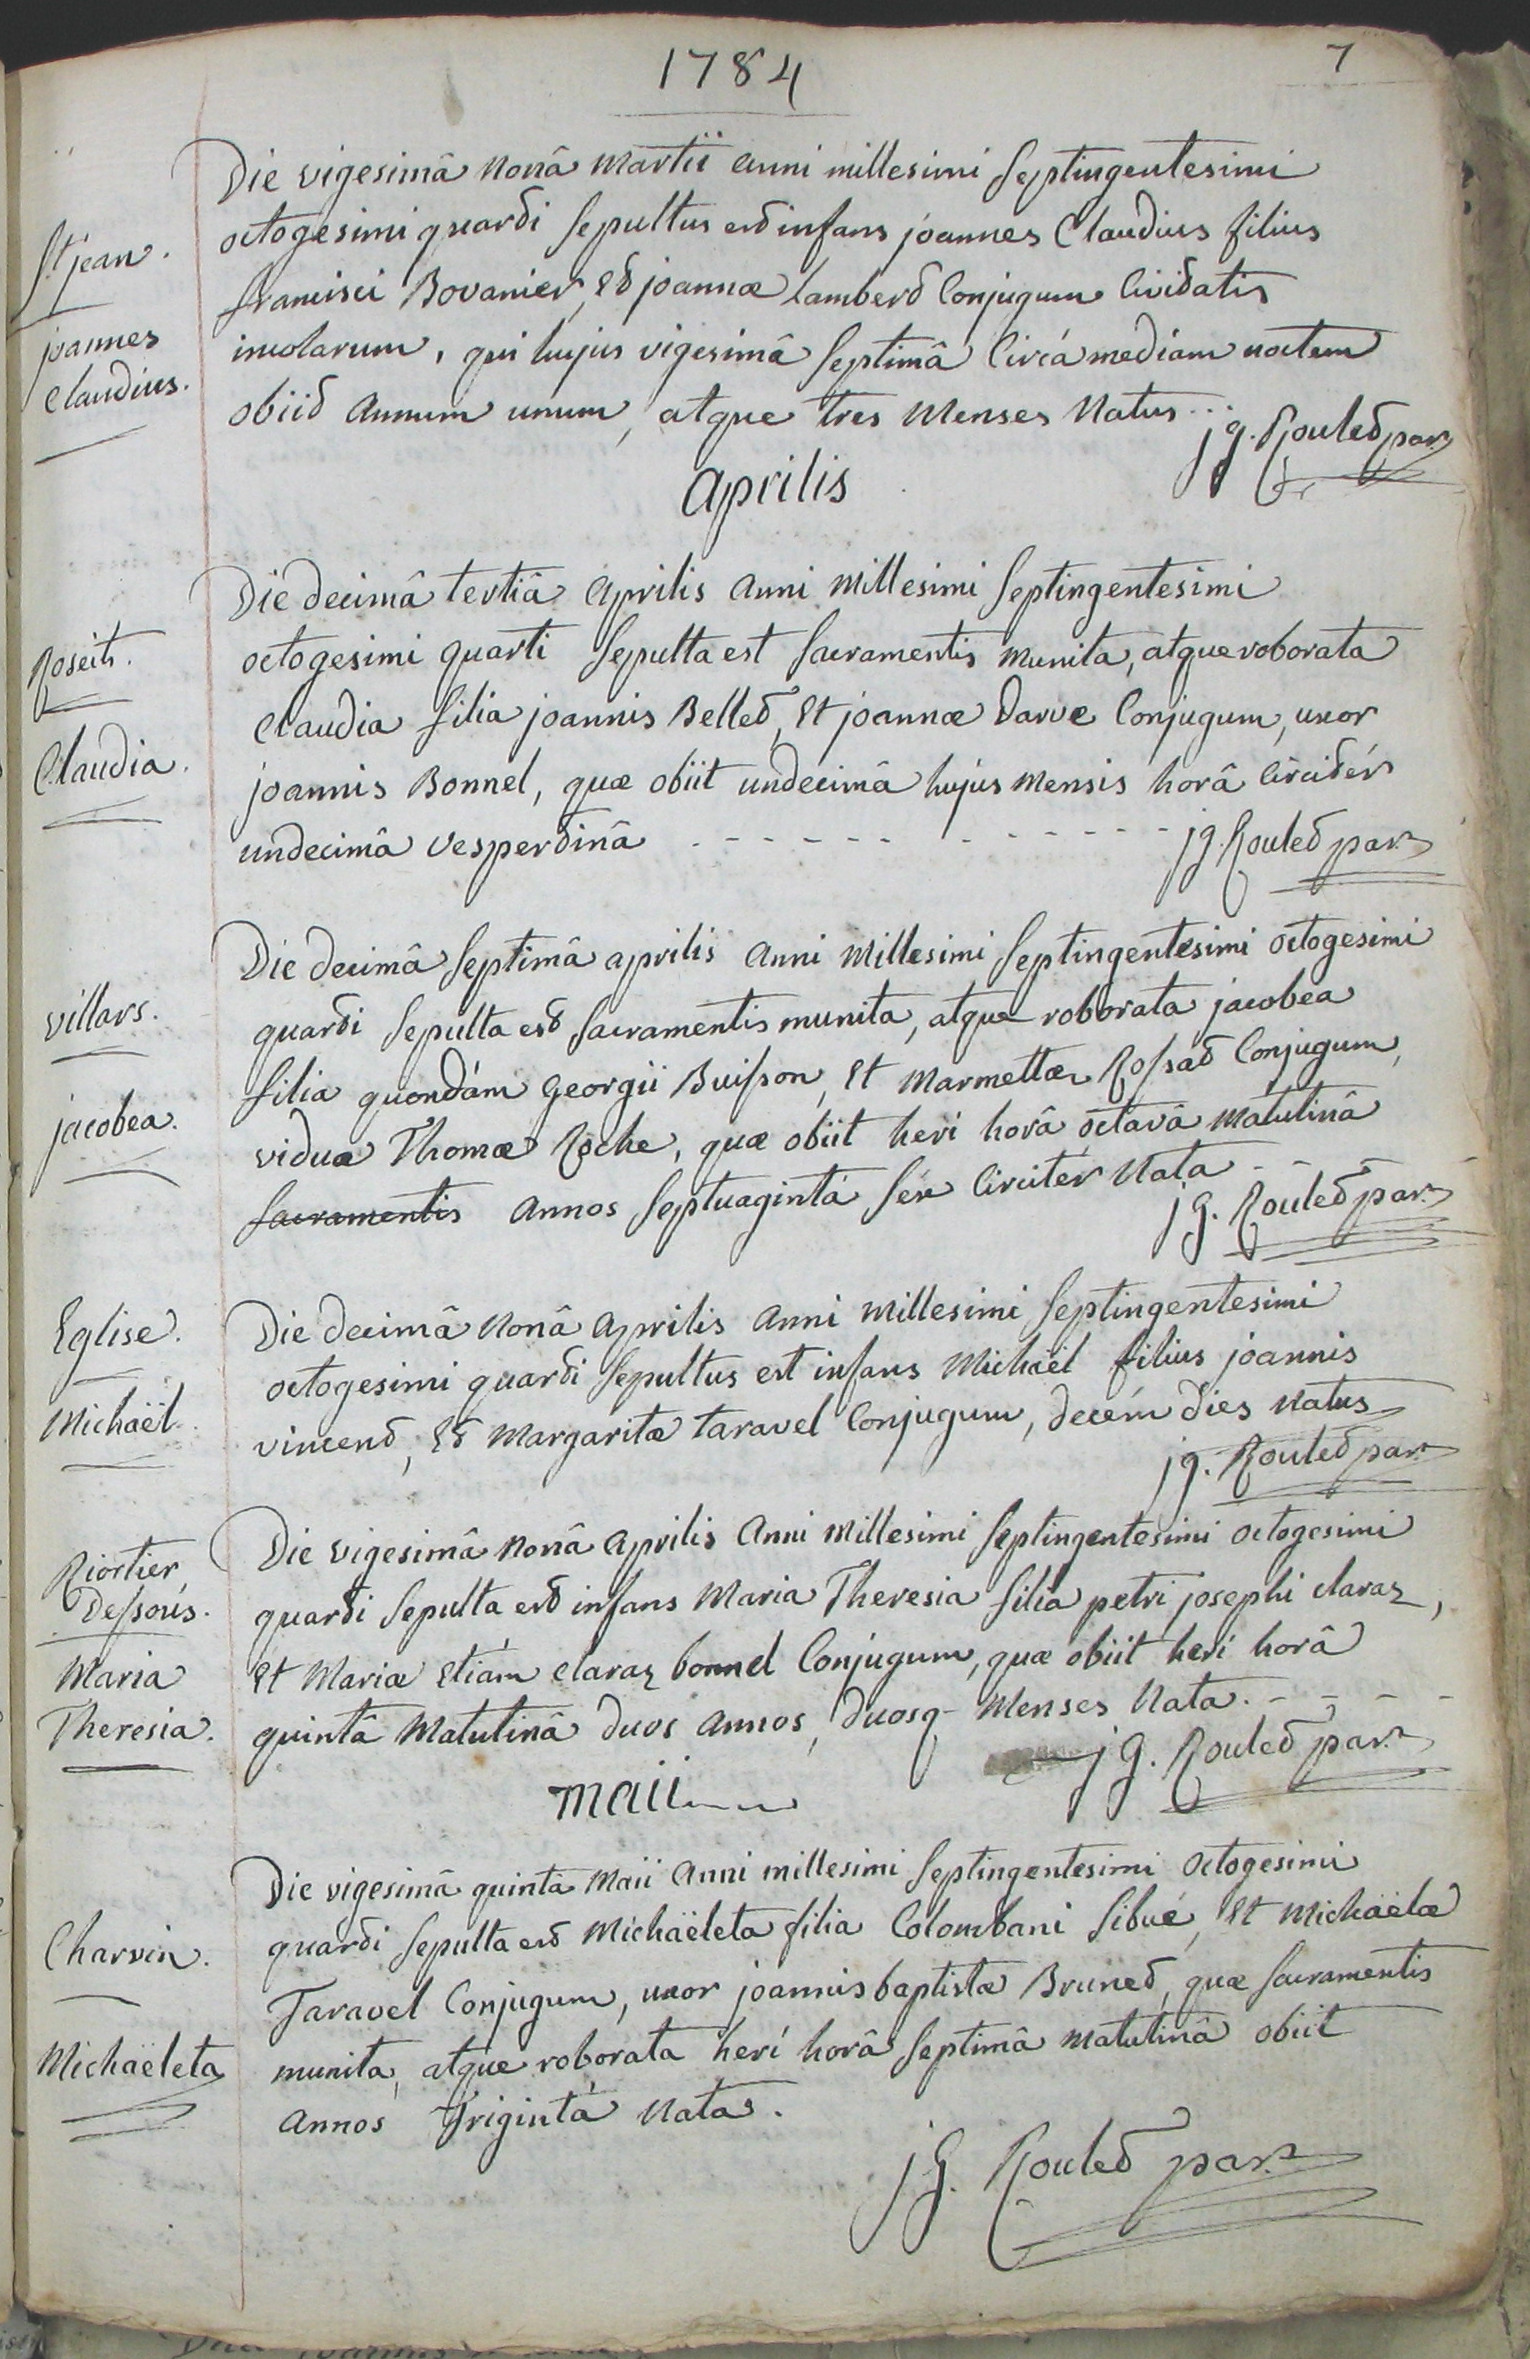 1784
7
Die vigesimâ nonâ Martii anni millesimi septingentesimi
octogesimi quarti sepultus est infans joannes Claudius filius
St jean.
francisci Bovanier, et joannæ lambert Conjugum Civitatis
joannes
incolarum, qui hujus vigesimâ septimâ Circà mediam noctem
Claudius.
obiit annum unum, atque tres Menses Natus...
jg. Roulet par.
Aprilis
Die decimâ tertiâ Aprilis anni Millesimi septingentesimi
octogesimi quarti sepulta est sacramentis munita, atque roborata
Claudia filia joannis Bellet, et joannæ Darve Conjugum, uxor
Claudia.
joannis Bonnel, quæ obiit undecimâ hujus Mensis horâ Circitèr
undecimâ vespertinâ
jg. Roulet par.
Die decimâ septimâ aprilis anni Millesimi septingentesimi octogesimi
villars.
quarti sepulta est sacramentis munita, atque roborata jacobea
filia quondàm Georgii Buisson, et Marmettæ Rossat Conjugum,
jacobea.
vidua Thomæ Roche, quæ obiit heri horâ octavâ Matutinâ
sacramentis annos septuagintà sex Circitèr Nata
jg. Roulet par.
Eglise.
Die decimâ Nonâ aprilis anni Millesimi septingentesimi
octogesimi quarti sepultus est infans Michaël filius joannis
Michaël
vincent, et Margaritæ taravel Conjugum, decèm dies Natus
jg. Roulet par.
Die vigesimâ nonâ aprilis anni Millesimi septingentesimi octogesimi
Riortier
Dessoùs.
quarti sepulta est infans Maria Theresia filia petri josephi claraz,
Maria
et Mariæ etiàm claraz bonnel Conjugum, quæ obiit heri horâ
Theresia.
quintâ Matutinâ duos annos, duosq- Menses Nata.
jg. Roulet par.
Maii
Die vigesimâ quintâ Maii anni millesimi septingentesimi octogesimi
Charvin.
quarti sepulta est Michaëleta filia Colombani Sibué, et Michaëlæ
Taravel Conjugum, uxor joannis baptistæ Brunet, quæ sacramentis
Michaëleta
munita, atque roborata heri horâ septimâ Matutinâ obiit
annos Trigintà Nata.
jg. Roulet par.